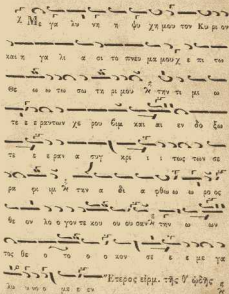 Με γα λυ νη η ψυ χη μου τον Κυ ρι ον
και η γα λι α σε το πνευ μα μου χ ε πι τω
Θε ω ω τω σω τη ρι μου την τι μι ω
τε ε ε ραν των χε ρου βιμ και αι εν δο ξω
τε ε ε ραν α συγ κρι ι ι τως των σε
ρα φι ιμ την α δι α φθω ω ω ρο ος
θε ον λο ο γον τε κου ου ου σαν την ω ων
τος θε ο το ο ο κον σε ε ε με γα
λυ υ νο ο με ε εν Ἕτερος εἱρμ. τῆς θ' ᾠδῆς